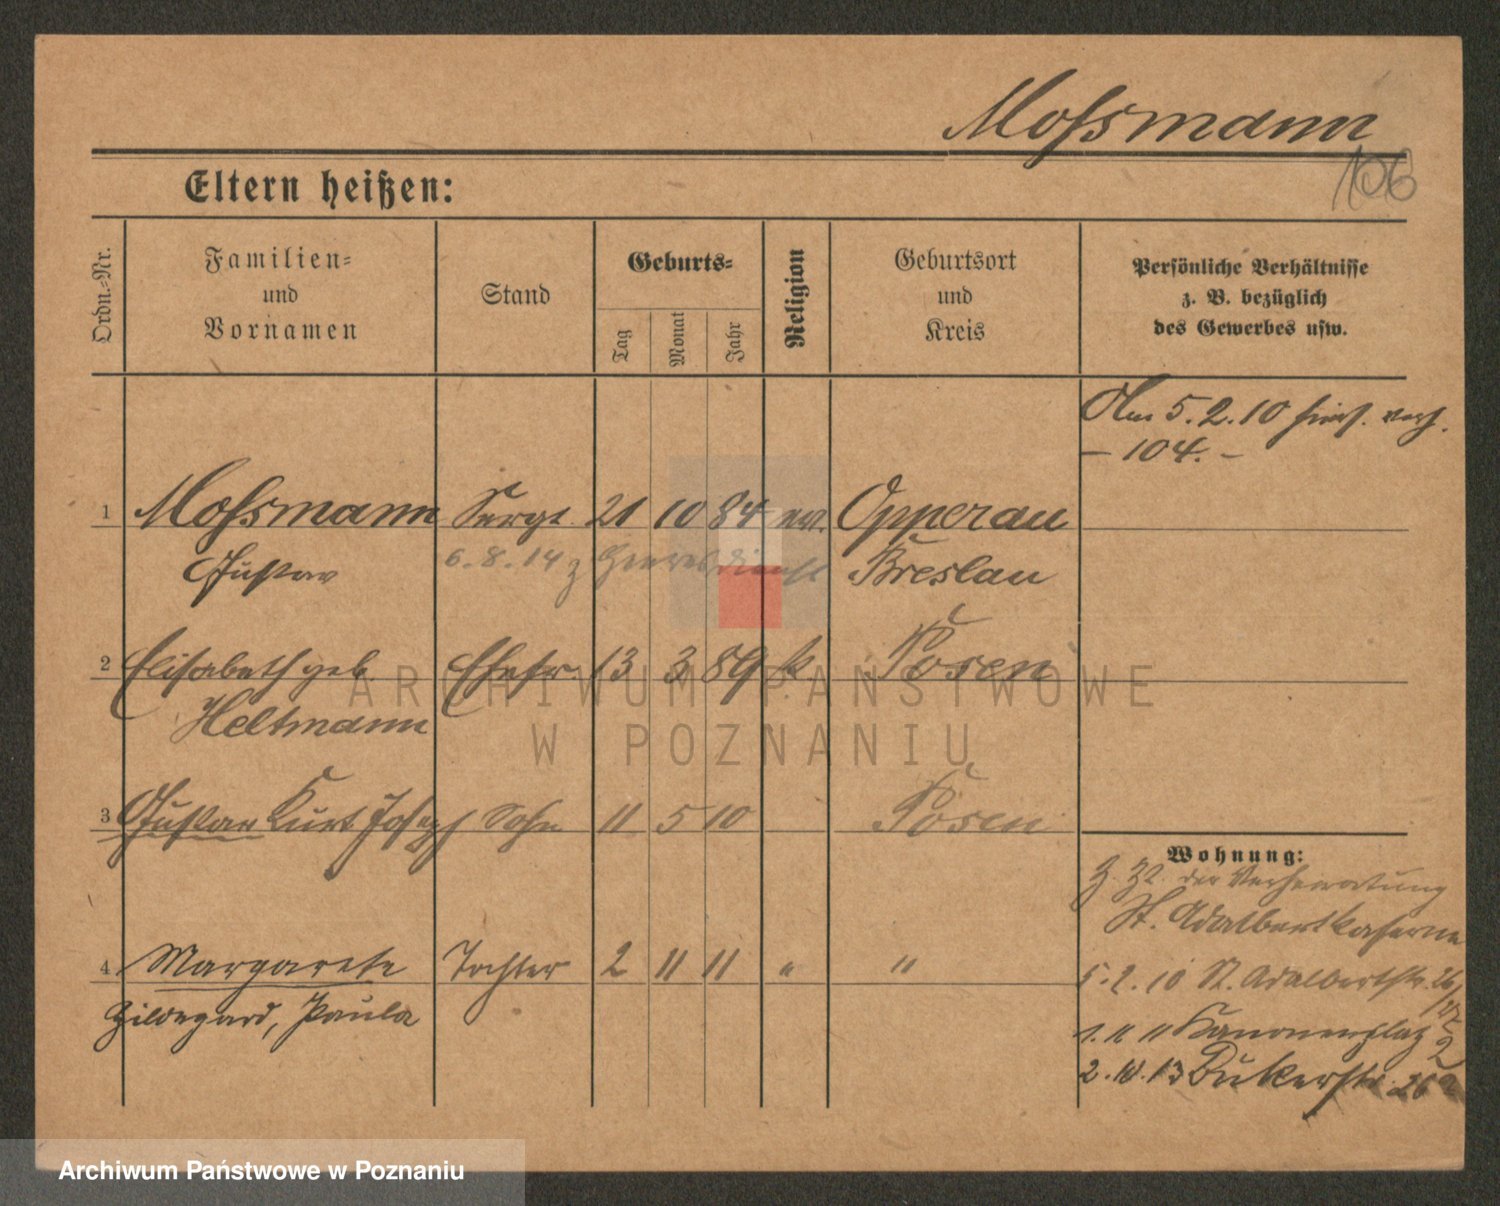 Mossmann
106
Eltern heißen:
Ordn.-Nr.
Familien-
und
Vornamen
Stand
Geburts-
Tag
Monat
Jahr
Religion
Geburtsort
und
Kreis
Persönliche Verhältnisse
z. B. bezüglich
des Gewerbes usw.
Am 5.2.10 hier verh.
– 104. –
1 Mossmann Sergt. 21 10 84 ev. Opperau
Gustav 6.8.14 z Heeresdienst Breslau
2 Elisabeth geb. Ehefr. 13 3 89 k. Posen
Heltmann
3 Gustav Kurt Joseph Sohn 11 5 10 Posen
Wohnung:
z. Zt. der Verheiratung
St. Adalbertkaserne
4 Margarete Tochter 2 11 11 " "
Hildegard, Paula
5.2.10 St. Adalbertstr. 26/27
1. 11 11 Kanonenplatz 2
2.10.13 Bukerstr.
ARCHIWUM PAŃSTWOWE
W POZNANIU
Archiwum Państwowe w Poznaniu